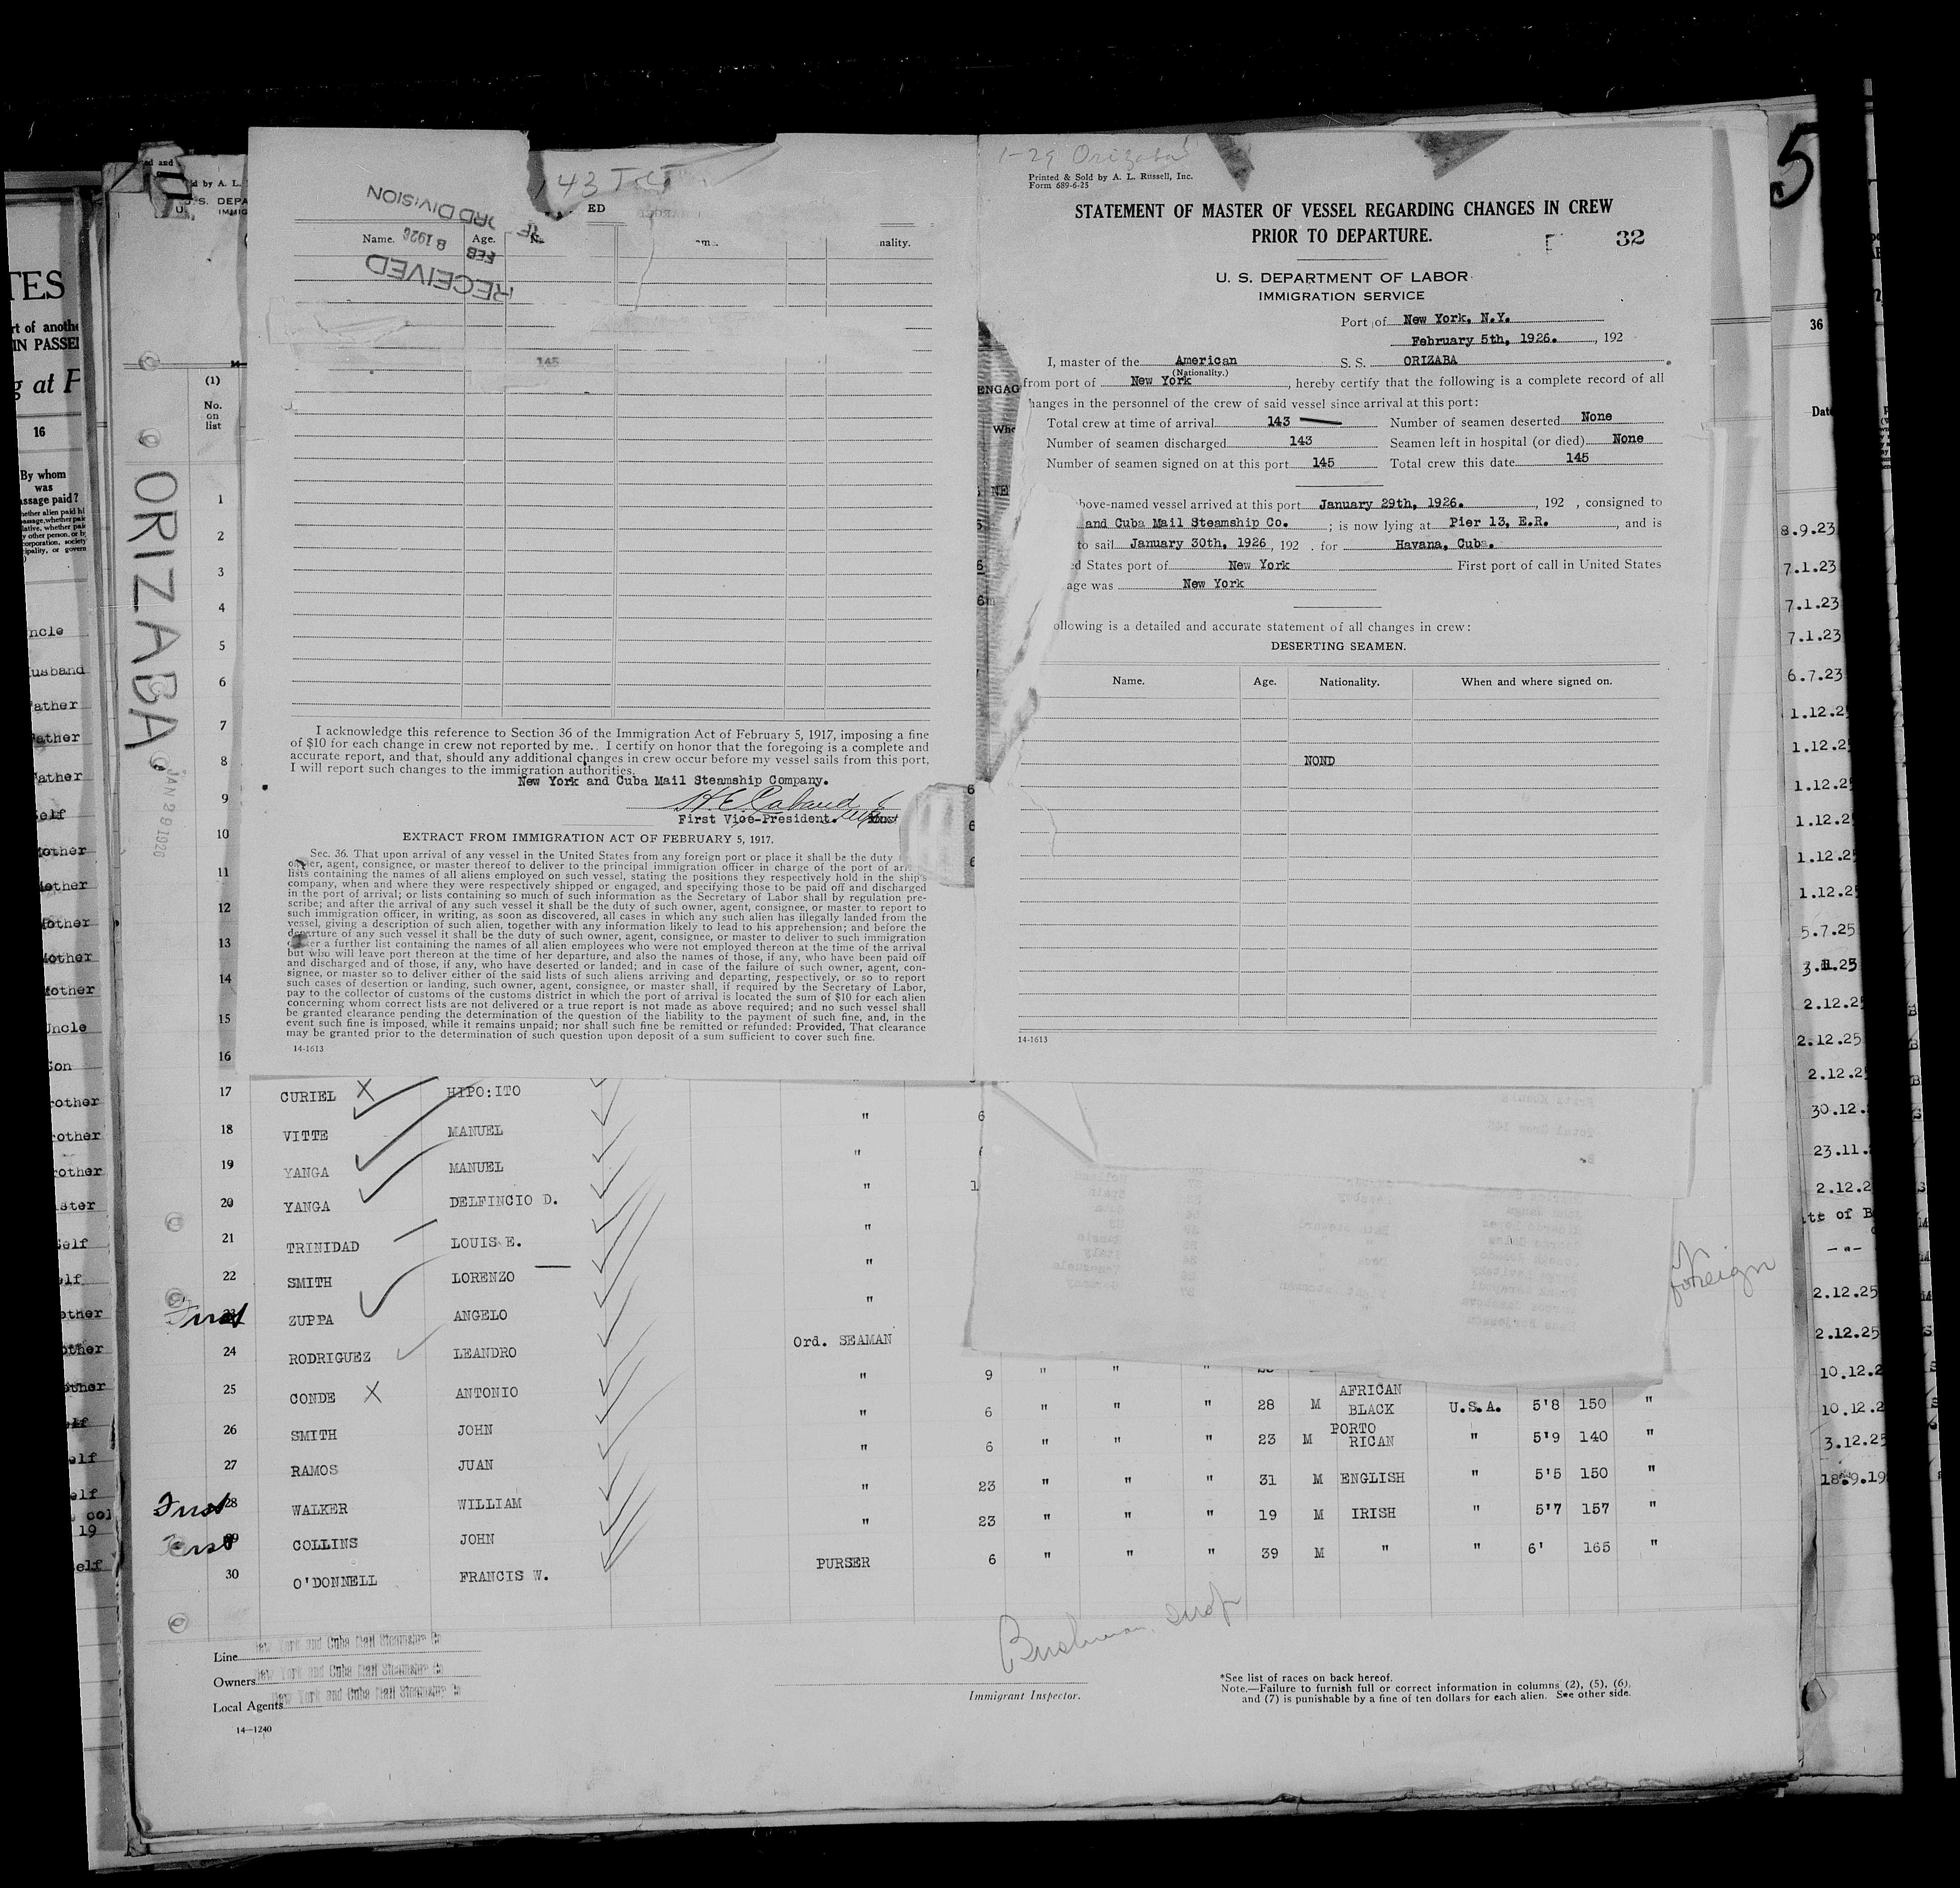 1-29 Orizaba
Printed & Sold by A. L. Russell, Inc.
Form 689-6-25
STATEMENT OF MASTER OF VESSEL REGARDING CHANGES IN CREW
PRIOR TO DEPARTURE.
32
U. S. DEPARTMENT OF LABOR
IMMIGRATION SERVICE
Port of New York, N.Y.
February 5th, 1926. , 192
I, master of the American S. S. ORIZABA
(Nationality.)
from port of New York , hereby certify that the following is a complete record of all
hanges in the personnel of the crew of said vessel since arrival at this port:
Total crew at time of arrival 143 Number of seamen deserted None
Number of seamen discharged 143 Seamen left in hospital (or died) None
Number of seamen signed on at this port 145 Total crew this date 145
bove-named vessel arrived at this port January 29th, 1926. , 192 , consigned to
and Cuba Mail Steamship Co. ; is now lying at Pier 13, E.R. , and is
to sail January 30th, 1926 , 192 . for Havana, Cuba.
ed States port of New York First port of call in United States
age was New York
ollowing is a detailed and accurate statement of all changes in crew:
DESERTING SEAMEN.
Name. Age. Nationality. When and where signed on.
NOND
14-1613
143
ED
RECORD DIVISION
FEB 8 1926
RECEIVED
Name. Age. nality.
145
I acknowledge this reference to Section 36 of the Immigration Act of February 5, 1917, imposing a fine
of $10 for each change in crew not reported by me. I certify on honor that the foregoing is a complete and
accurate report, and that, should any additional changes in crew occur before my vessel sails from this port,
I will report such changes to the immigration authorities.
New York and Cuba Mail Steamship Company.
First Vice-President.
EXTRACT FROM IMMIGRATION ACT OF FEBRUARY 5, 1917.
Sec. 36. That upon arrival of any vessel in the United States from any foreign port or place it shall be the duty
owner, agent, consignee, or master thereof to deliver to the principal immigration officer in charge of the port of arr
lists containing the names of all aliens employed on such vessel, stating the positions they respectively hold in the ship's
company, when and where they were respectively shipped or engaged, and specifying those to be paid off and discharged
in the port of arrival; or lists containing so much of such information as the Secretary of Labor shall by regulation pre-
scribe; and after the arrival of any such vessel it shall be the duty of such owner, agent, consignee, or master to report to
such immigration officer, in writing, as soon as discovered, all cases in which any such alien has illegally landed from the
vessel, giving a description of such alien, together with any information likely to lead to his apprehension; and before the
departure of any such vessel it shall be the duty of such owner, agent, consignee, or master to deliver to such immigration
officer a further list containing the names of all alien employees who were not employed thereon at the time of the arrival
but who will leave port thereon at the time of her departure, and also the names of those, if any, who have been paid off
and discharged and of those, if any, who have deserted or landed; and in case of the failure of such owner, agent, con-
signee, or master so to deliver either of the said lists of such aliens arriving and departing, respectively, or so to report
such cases of desertion or landing, such owner, agent, consignee, or master shall, if required by the Secretary of Labor,
pay to the collector of customs of the customs district in which the port of arrival is located the sum of $10 for each alien
concerning whom correct lists are not delivered or a true report is not made as above required; and no such vessel shall
be granted clearance pending the determination of the question of the liability to the payment of such fine, and, in the
event such fine is imposed, while it remains unpaid; nor shall such fine be remitted or refunded: Provided, That clearance
may be granted prior to the determination of such question upon deposit of a sum sufficient to cover such fine.
14-1613
ORIZABA
JAN 29 1926
(1)
No.
on
list
1
2
3
4
5
6
7
8
9
10
11
12
13
14
15
16
17 CURIEL X HIPO:ITO
18 VITTE MANUEL " 6
19 YANGA MANUEL "
20 YANGA DELFINCIO D. " 1
21 TRINIDAD LOUIS E. "
22 SMITH LORENZO "
23 ZUPPA ANGELO "
24 RODRIGUEZ LEANDRO Ord. SEAMAN
25 CONDE X ANTONIO " 9 " " "
26 SMITH JOHN " 6 " " " 28 M AFRICAN BLACK U.S.A. 5'8 150 "
27 RAMOS JUAN " 6 " " " 23 M PORTO RICAN " 5'9 140 "
First 28 WALKER WILLIAM " 23 " " " 31 M ENGLISH " 5'5 150 "
First 29 COLLINS JOHN " 23 " " " 19 M IRISH " 5'7 157 "
30 O'DONNELL FRANCIS W. PURSER 6 " " " 39 M " " 6' 165 "
Foreign
Line New York and Cuba Mail Steamship Co
Owners New York and Cuba Mail Steamship Co
Local Agents New York and Cuba Mail Steamship Co
14-1240
Immigrant Inspector.
*See list of races on back hereof.
Note.—Failure to furnish full or correct information in columns (2), (5), (6),
and (7) is punishable by a fine of ten dollars for each alien. See other side.
TES
rt of anothe
IN PASSE
g at F
16
By whom
was
assage paid?
ncle
usband
ather
ather
ather
elf
other
other
other
other
other
Uncle
Son
rother
other
rother
ster
Self
elf
5
36
Date
8.9.23
7.1.23
7.1.23
7.1.23
6.7.23
1.12.2
1.12.2
1.12.2
1.12.2
1.12.25
1.12.25
5.7.25
2.12.25
2.12.25
2.12.2
30.12.
23.11.
2.12.2
2.12.25
2.12.25
10.12.2
10.12.2
3.12.25